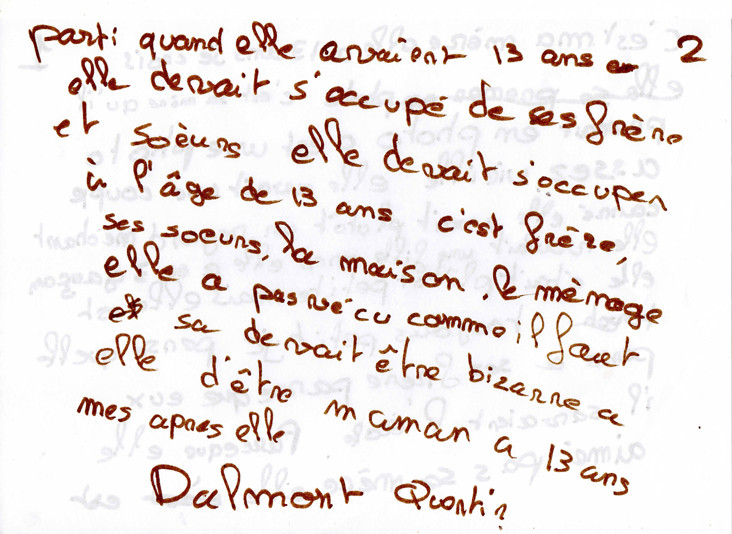 parti quand elle avaient 13 ans 2
elle devait s'occupé de ses frère
et soèurs elle devait s'occuper
à l'âge de 13 ans c'est frère,
ses soeurs, la maison, le mènage
elle a pas vécu comme il faut
et sa devait être bizarre a
elle d'être maman a 13 ans
mes apres elle
Dalmont Quentin